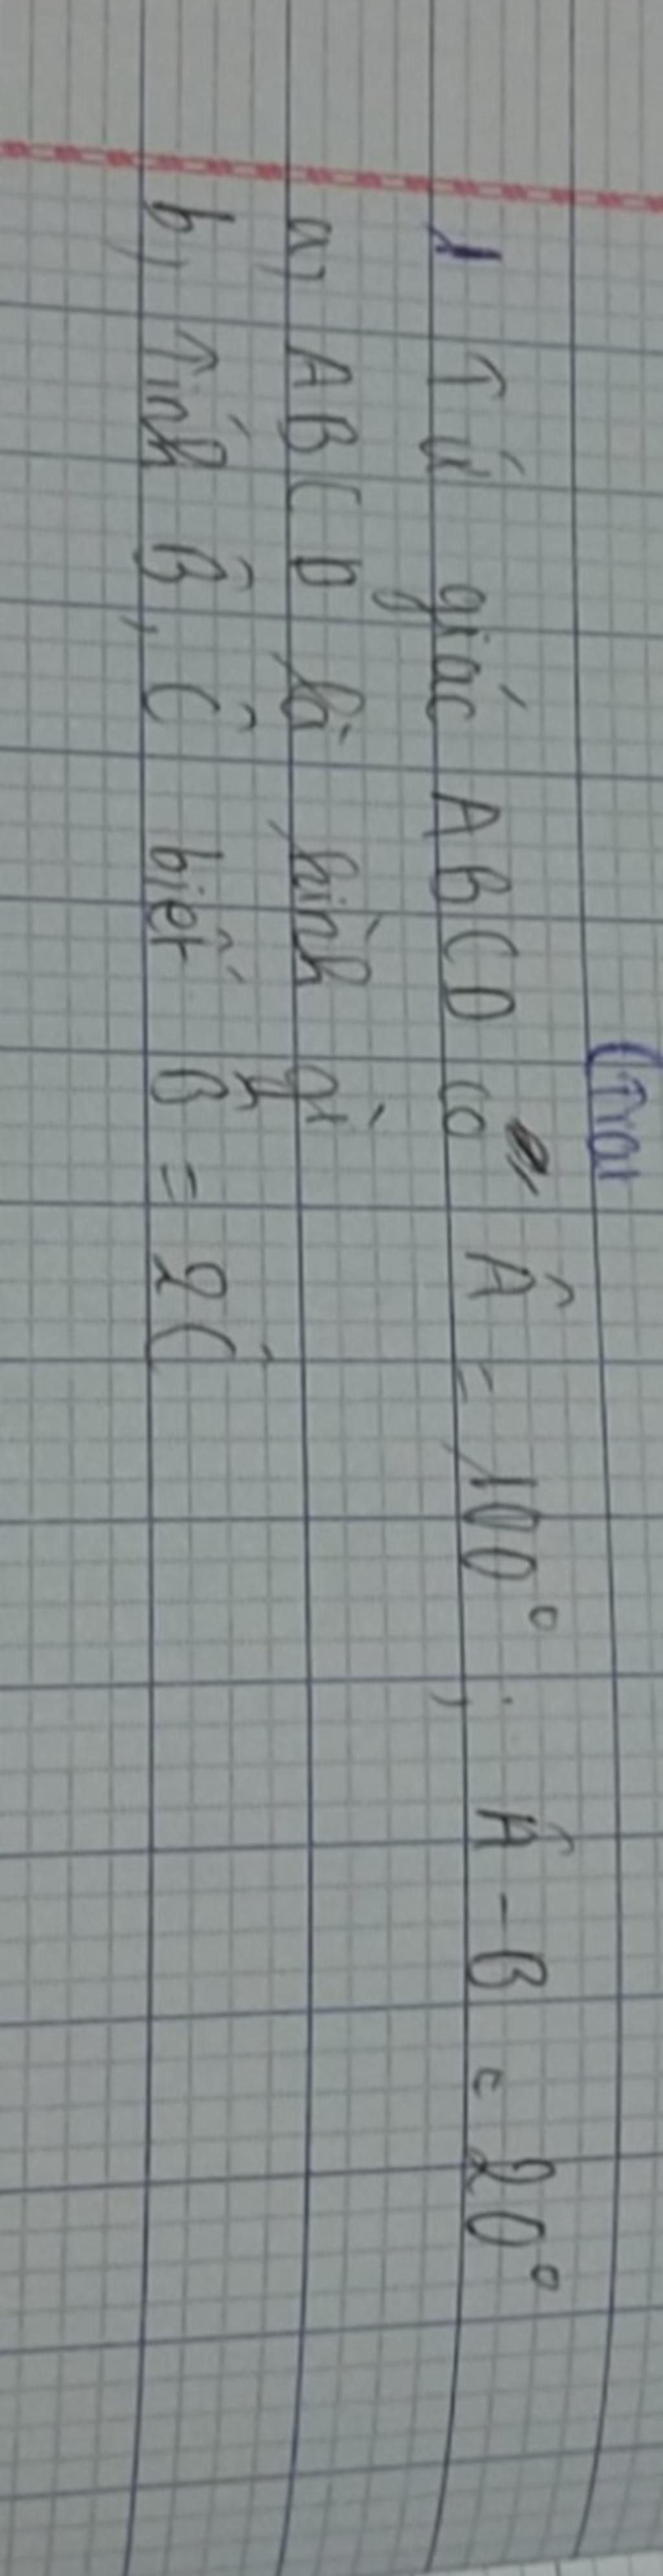 1 Tứ giác ABCD có Â = 100° ; Â - B = 20°
a, ABCD là hình gì
b, Tính B̂, Ĉ biết B̂ = 2Ĉ